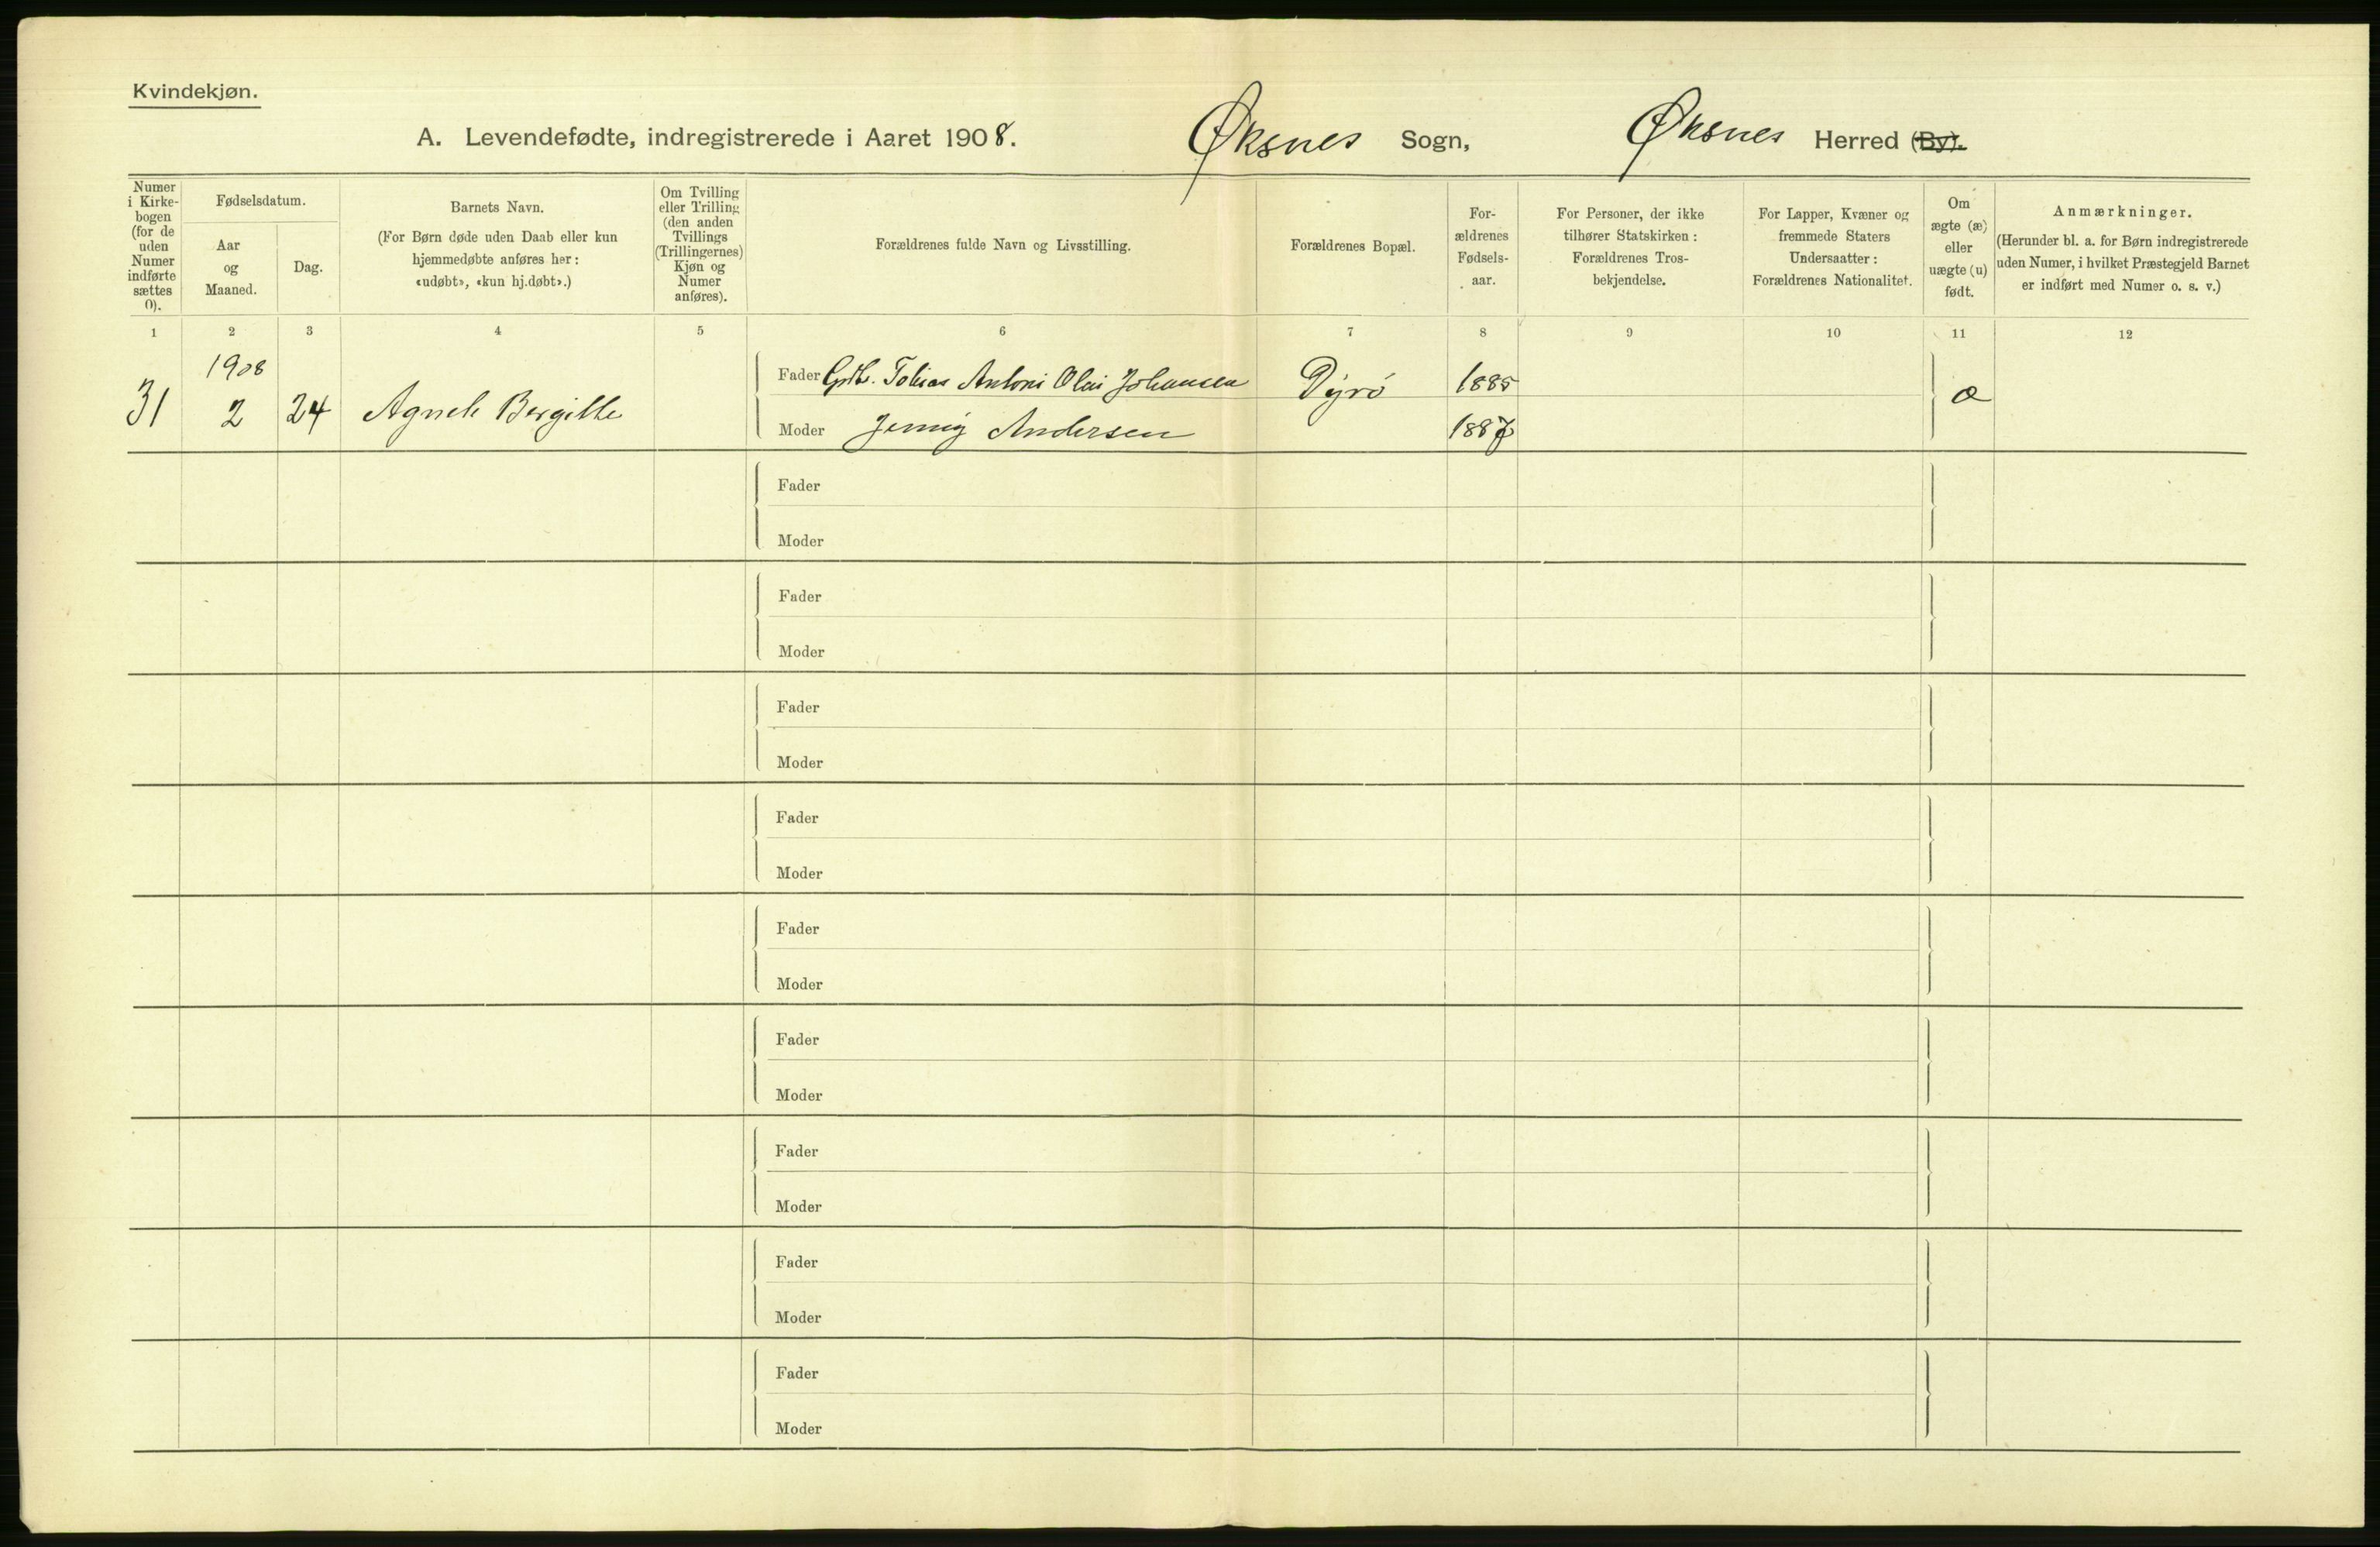 Kvindekjøn.
A. Levendefødte, indregistrerede i Aaret 1908. Øksnes Sogn, Øksnes Herred (By).
Numer i Kirkebogen (for de uden Numer indførte sættes 0).
Fødselsdatum.
Aar og Maaned.
Dag.
Barnets Navn.
(For Børn døde uden Daab eller kun hjemmedøbte anføres her: «udøbt», «kun hj.døbt».)
Om Tvilling eller Trilling (den anden Tvillings (Trillingernes) Kjøn og Numer anføres).
Forældrenes fulde Navn og Livsstilling.
Forældrenes Bopæl.
Forældrenes Fødselsaar.
For Personer, der ikke tilhører Statskirken: Forældrenes Trosbekjendelse.
For Lapper, Kvæner og fremmede Staters Undersaatter: Forældrenes Nationalitet.
Om ægte (æ) eller uægte (u) født.
Anmærkninger.
(Herunder bl. a. for Børn indregistrerede uden Numer, i hvilket Præstegjeld Barnet er indført med Numer o. s. v.)
1 2 3 4 5 6 7 8 9 10 11 12
1908
Fader Tobias Antoni Olai Johansen Dyrö 1885
31 2 24 Agnele Bergitte æ
Moder Jenny Andersen 1887
Fader
Moder
Fader
Moder
Fader
Moder
Fader
Moder
Fader
Moder
Fader
Moder
Fader
Moder
Fader
Moder
Fader
Moder